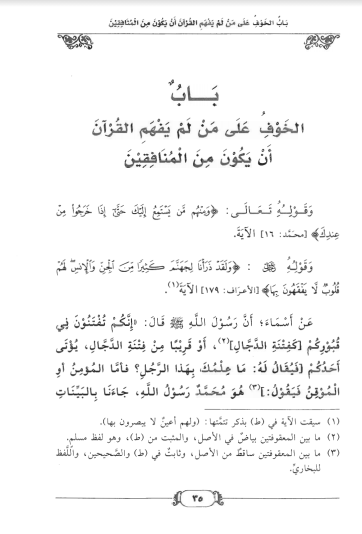 بَابُ الخَوْفِ عَلَى مَنْ لَمْ يَفْهَمِ القُرْآنَ أَنْ يَكُونَ مِنَ الْمُنَافِقِيْنَ
بَــابٌ
الخَوْفُ عَلَى مَنْ لَمْ يَفْهَمِ القُرْآنَ
أَنْ يَكُونَ مِنَ الْمُنَافِقِيْنَ
وَقَوْلِـهِ تَـعَـالَـى: ﴿وَمِنْهُم مَّن يَسْتَمِعُ إِلَيْكَ حَتَّىٰ إِذَا خَرَجُوا مِنْ
عِندِكَ﴾ [محمَّد: ١٦] الآيَةَ.
وَقَـوْلِـهِ ﷻ : ﴿وَلَقَدْ ذَرَأْنَا لِجَهَنَّمَ كَثِيرًا مِّنَ الْجِنِّ وَالْإِنسِ لَهُمْ
قُلُوبٌ لَّا يَفْقَهُونَ بِهَا﴾ [الأعراف: ١٧٩] الآيَةَ(١).
عَنْ أَسْمَاءَ؛ أَنَّ رَسُولَ اللَّهِ ﷺ قَالَ: «إِنَّكُمْ تُفْتَنُوْنَ فِي
قُبُورِكُمْ [كَفِتْنَةِ الدَّجَّالِ](٢)، أَوْ قَرِيْبًا مِنْ فِتْنَةِ الدَّجَّالِ، يُؤْتَى
أَحَدُكُمْ [فَيُقَالُ لَهُ: مَا عِلْمُكَ بِهَذَا الرَّجُلِ؟ فَأَمَّا المُؤْمِنُ أَوِ
الْمُوْقِنُ فَيَقُولُ:](٣) هُوَ مُحَمَّدٌ رَسُولُ اللَّهِ، جَاءَنَا بِالبَيِّنَاتِ
(١) سيقت الآية في (ط) بذكر تتمَّتها: (ولهم أعينٌ لا يبصرون بها).
(٢) ما بين المعقوفتين بياضٌ في الأصل، والمثبت من (ط)، وهو لفظ مسلم.
(٣) ما بين المعقوفتين ساقطٌ من الأصل، وثابتٌ في (ط) والصَّحيحين، واللَّفظ
للبخاريِّ.
٣٥